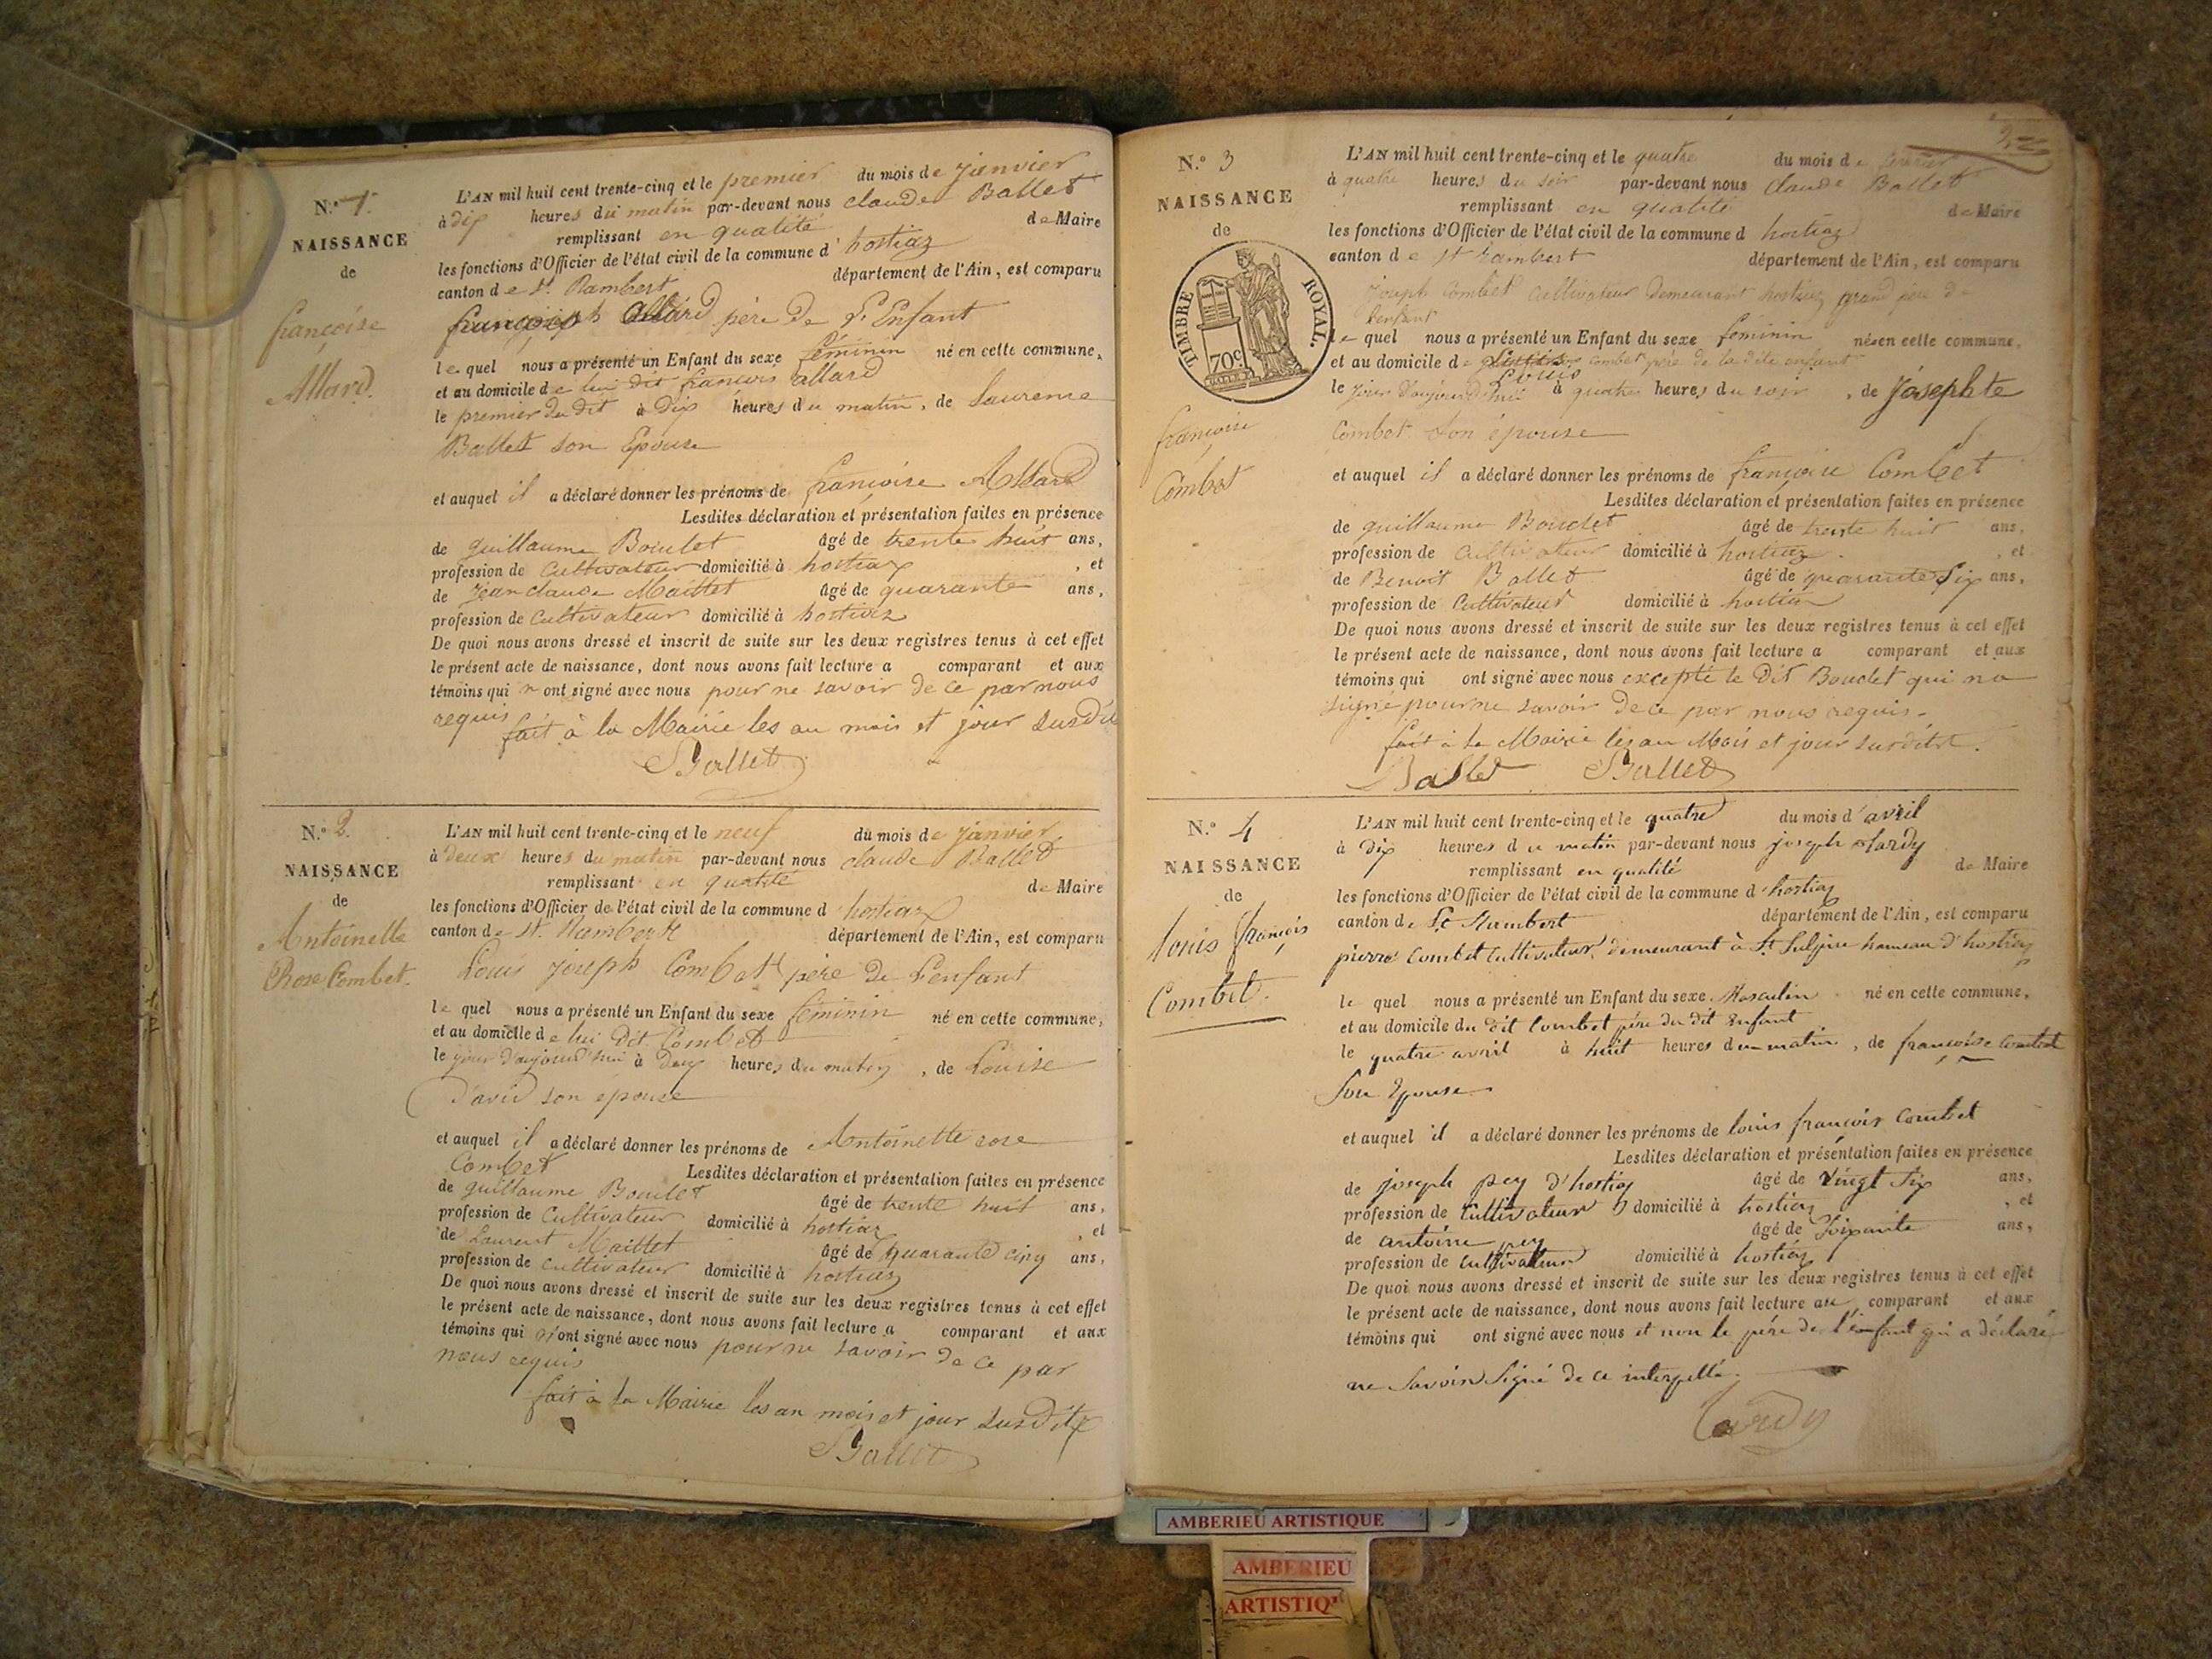 N.o 1.
NAISSANCE
de
françoise
Allard.
L'AN mil huit cent trente-cinq et le premier du mois de janvier
à dix heures du matin par-devant nous claude Ballet
remplissant en qualité de Maire
les fonctions d'Officier de l'état civil de la commune d' hostiaz
canton de St. Rambert département de l'Ain, est comparu
Allard père de l'Enfant
le quel nous a présenté un Enfant du sexe féminin né en cette commune,
et au domicile de lui dit francois allard
le premier du dit à dix heures du matin, de Laurence
Ballet son Epouse
et auquel il a déclaré donner les prénoms de françoise Allard
Lesdites déclaration et présentation faites en présence
de guillaume Boudet âgé de trente huit ans,
profession de Cultivateur domicilié à hostiaz, et
de jean claude Maillet âgé de quarante ans,
profession de Cultivateur domicilié à hostiaz
De quoi nous avons dressé et inscrit de suite sur les deux registres tenus à cet effet
le présent acte de naissance, dont nous avons fait lecture a comparant et aux
témoins qui n ont signé avec nous pour ne savoir de ce par nous
requis
fait à la Mairie les an mois et jour susdit
Ballet
N.o 2.
NAISSANCE
de
Antoinette
Rose Combet.
L'AN mil huit cent trente-cinq et le neuf du mois de janvier
à deux heures du matin par-devant nous claude Ballet
remplissant en qualité de Maire
les fonctions d'Officier de l'état civil de la commune d hostiaz
canton de St. Rambert département de l'Ain, est comparu
Louis joseph Combet père de l'enfant
le quel nous a présenté un Enfant du sexe féminin né en cette commune,
et au domicile de lui dit Combet
le jour d'aujourd'hui à deux heures du matin, de Louise
David son epouse
et auquel il a déclaré donner les prénoms de Antoinette rose
Combet
Lesdites déclaration et présentation faites en présence
de guillaume Boudet âgé de trente huit ans,
profession de Cultivateur domicilié à hostiaz, et
de Laurent Maillet âgé de quarante cinq ans,
profession de cultivateur domicilié à hostiaz
De quoi nous avons dressé et inscrit de suite sur les deux registres tenus à cet effet
le présent acte de naissance, dont nous avons fait lecture a comparant et aux
témoins qui n'ont signé avec nous pour ne savoir de ce par
nous requis
fait à la Mairie les an mois et jour susdits
Ballet
N.o 3
NAISSANCE
de
TIMBRE ROYAL.
70c.
françoise
Combet
L'AN mil huit cent trente-cinq et le quatre du mois de
à quatre heures du soir par-devant nous Claude Ballet
remplissant en qualité de Maire
les fonctions d'Officier de l'état civil de la commune d hostiaz
canton de St Rambert département de l'Ain, est comparu
joseph Combet Cultivateur demeurant hostiaz grand père de
l'enfant
le quel nous a présenté un Enfant du sexe féminin née en cette commune,
et au domicile de Louis combet père de la dite enfant
le jour d'aujourd'hui à quatre heures du soir, de josephte
Combet son épouse
et auquel il a déclaré donner les prénoms de françoise Combet
Lesdites déclaration et présentation faites en présence
de guillaume Boudet âgé de trente huit ans,
profession de Cultivateur domicilié à hostiaz, et
de Benoit Ballet âgé de quarante six ans,
profession de Cultivateur domicilié à hostiaz
De quoi nous avons dressé et inscrit de suite sur les deux registres tenus à cet effet
le présent acte de naissance, dont nous avons fait lecture a comparant et aux
témoins qui ont signé avec nous excepté le dit Boudet qui na
signé pour ne savoir de ce par nous requis.
fait à la Mairie les an Mois et jour susdits.
Ballet Ballet
N.o 4
NAISSANCE
de
Louis françois
Combet.
L'AN mil huit cent trente-cinq et le quatre du mois d'avril
à dix heures du matin par-devant nous joseph Tardy
remplissant en qualité de Maire
les fonctions d'Officier de l'état civil de la commune d'hostiaz
canton de St Rambert département de l'Ain, est comparu
pierre Combet Cultivateur demeurant à St Sulpice hameau d'hostiaz
le quel nous a présenté un Enfant du sexe Masculin né en cette commune,
et au domicile du dit Combet père du dit Enfant
le quatre avril à huit heures du matin, de françoise Combet
Son Epouse
et auquel il a déclaré donner les prénoms de louis françois Combet
Lesdites déclaration et présentation faites en présence
de joseph pey d'hostiaz âgé de vingt six ans,
profession de Cultivateur domicilié à hostiaz, et
de antoine pey âgé de Soixante ans,
profession de Cultivateur domicilié à hostiaz
De quoi nous avons dressé et inscrit de suite sur les deux registres tenus à cet effet
le présent acte de naissance, dont nous avons fait lecture au comparant et aux
témoins qui ont signé avec nous et non le père de l'enfant qui a déclaré
ne Savoir Signé de ce interpellé.
Tardy
AMBERIEU ARTISTIQUE
AMBERIEU
ARTISTIQ